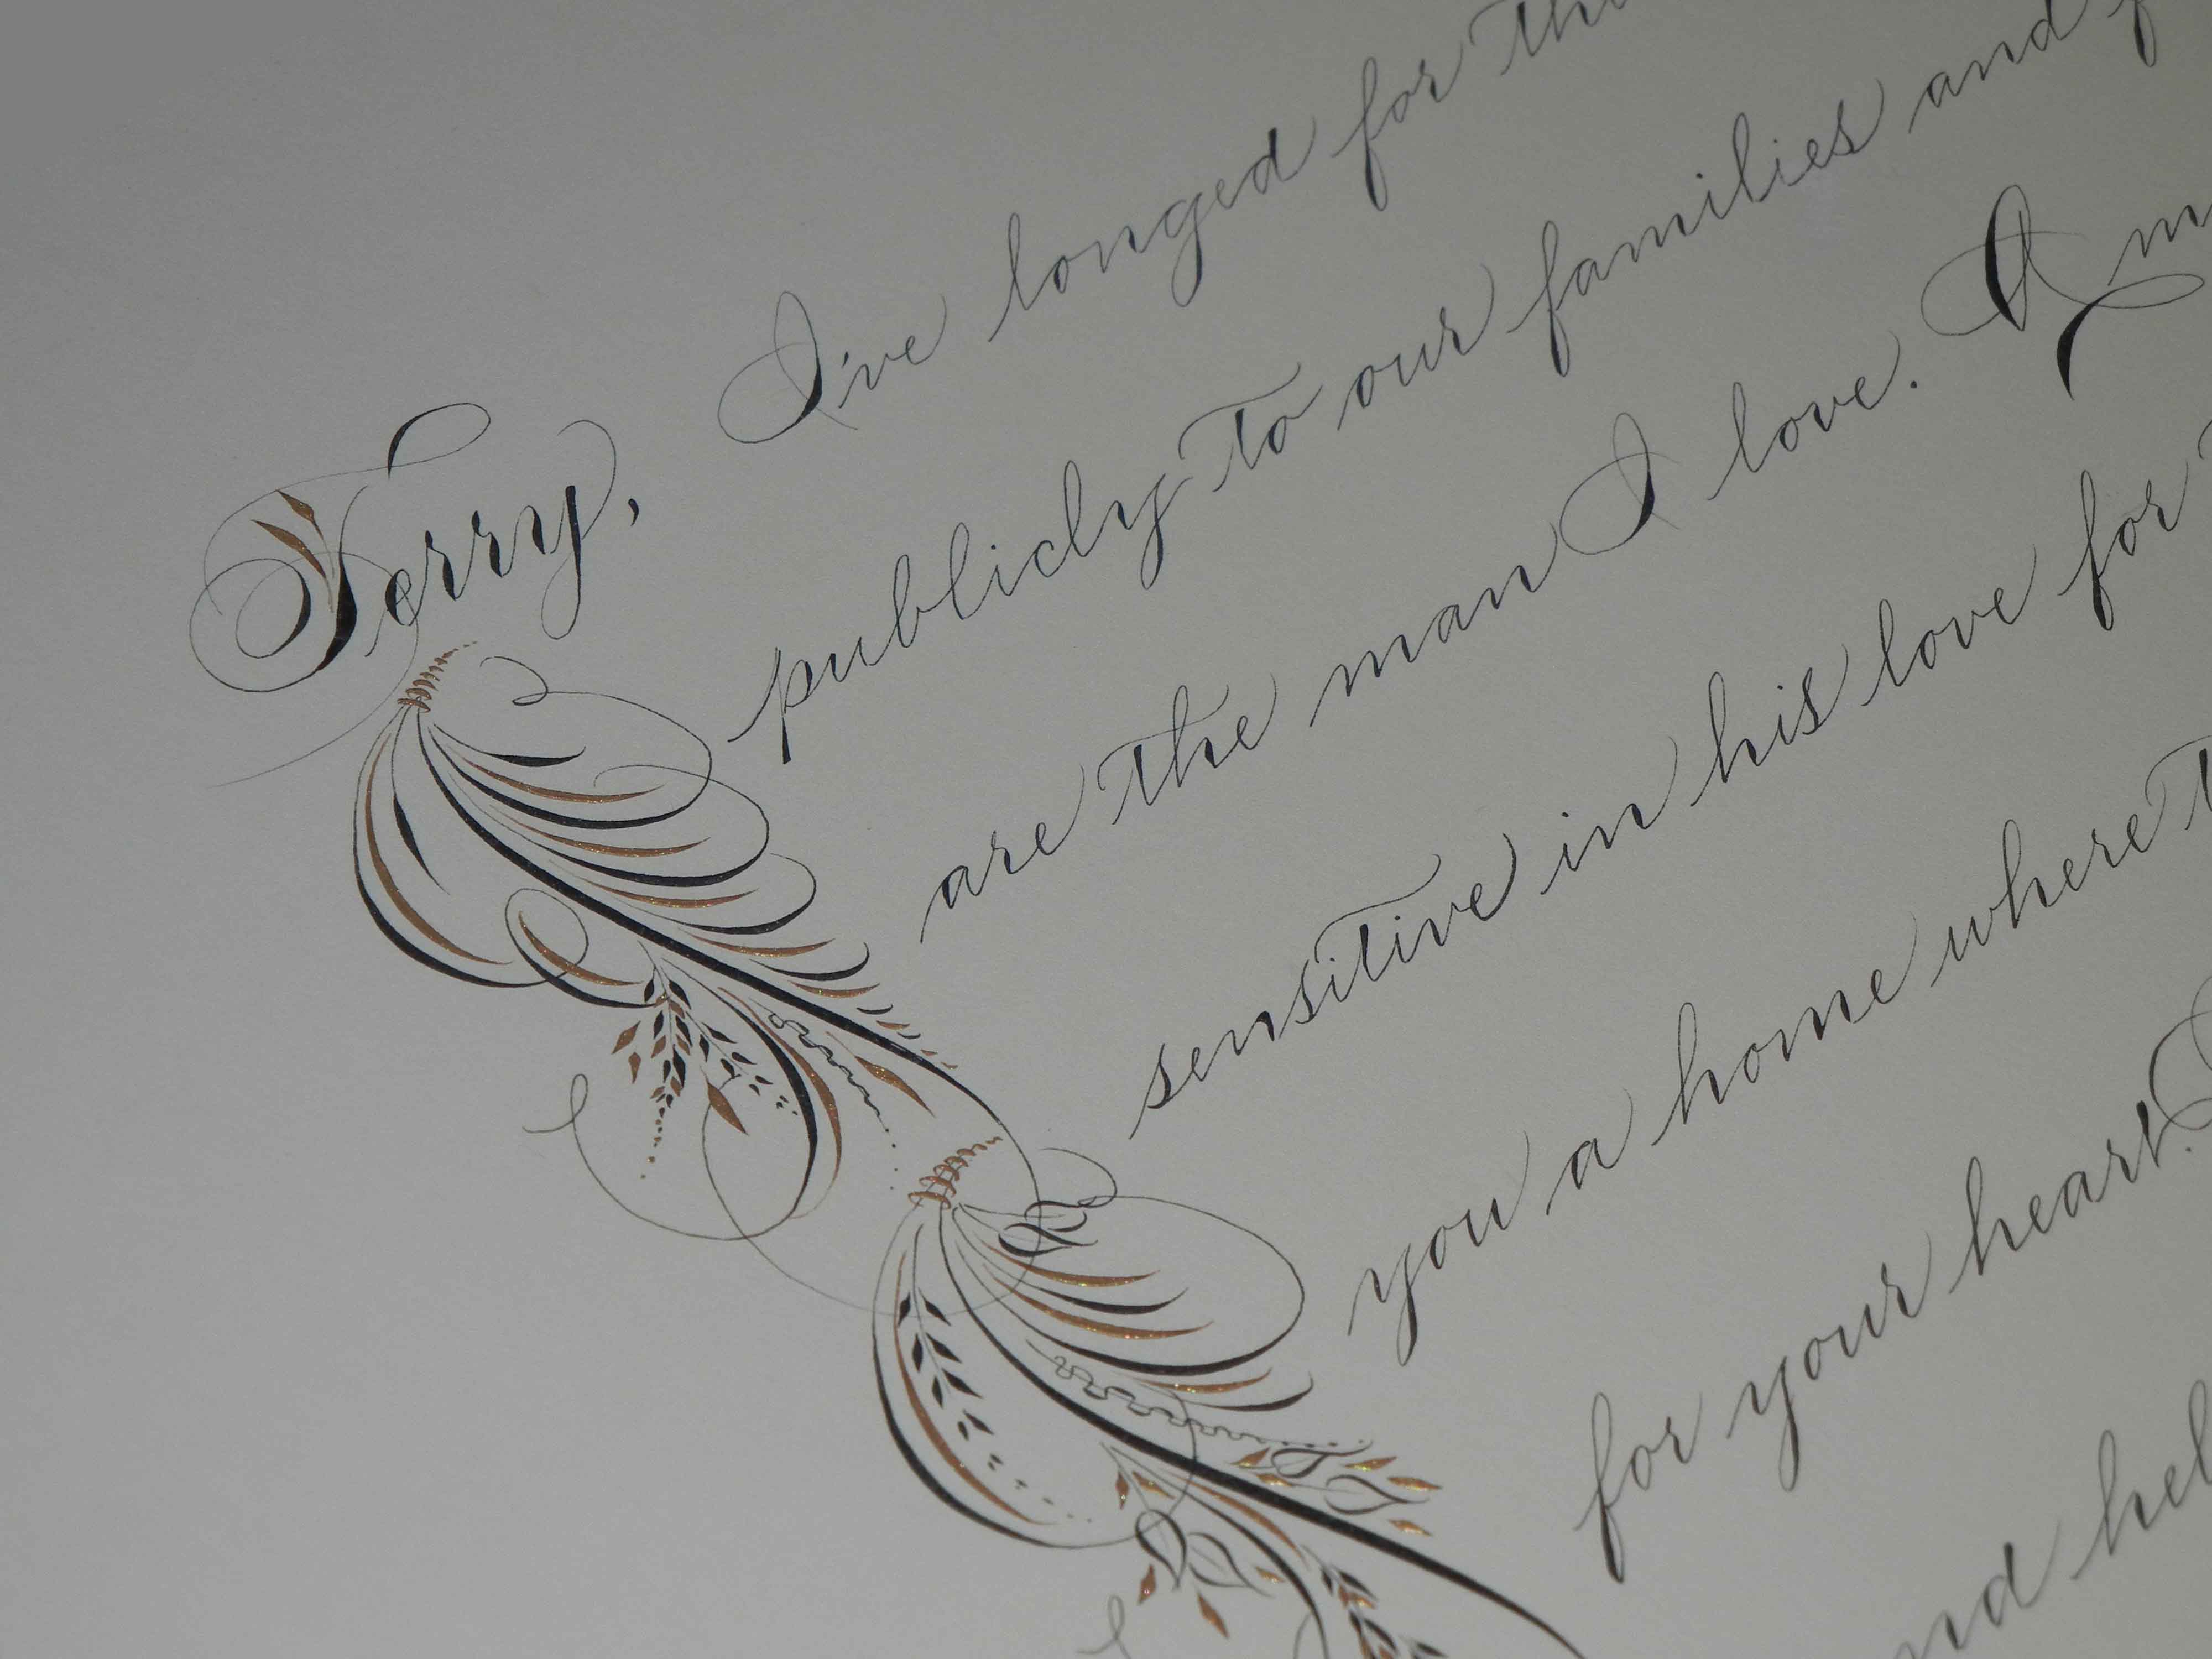 Terry, I've longed for
publicly to our families and
are the man I love. A
sensitive in his love for
you a home where
for your heart.